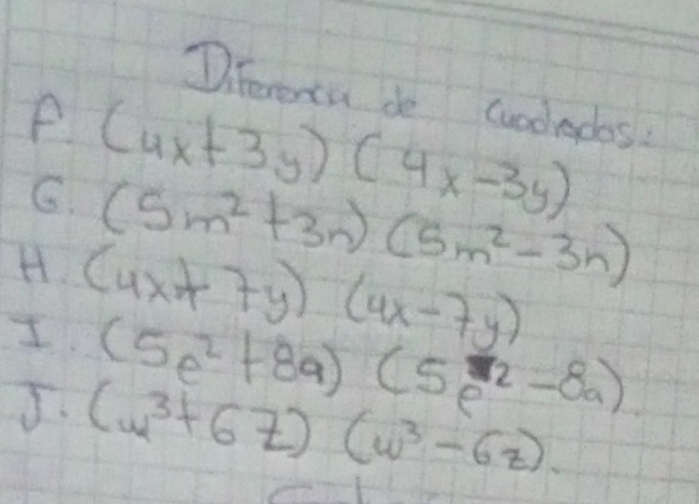 Diferencia de cuadrados:
F. (4x+3y) (4x-3y)
G. (5m²+3n) (5m²-3n)
H. (4x+7y) (4x-7y)
I. (5e²+8a) (5e²-8a).
J. (w³+6z) (w³-6z).